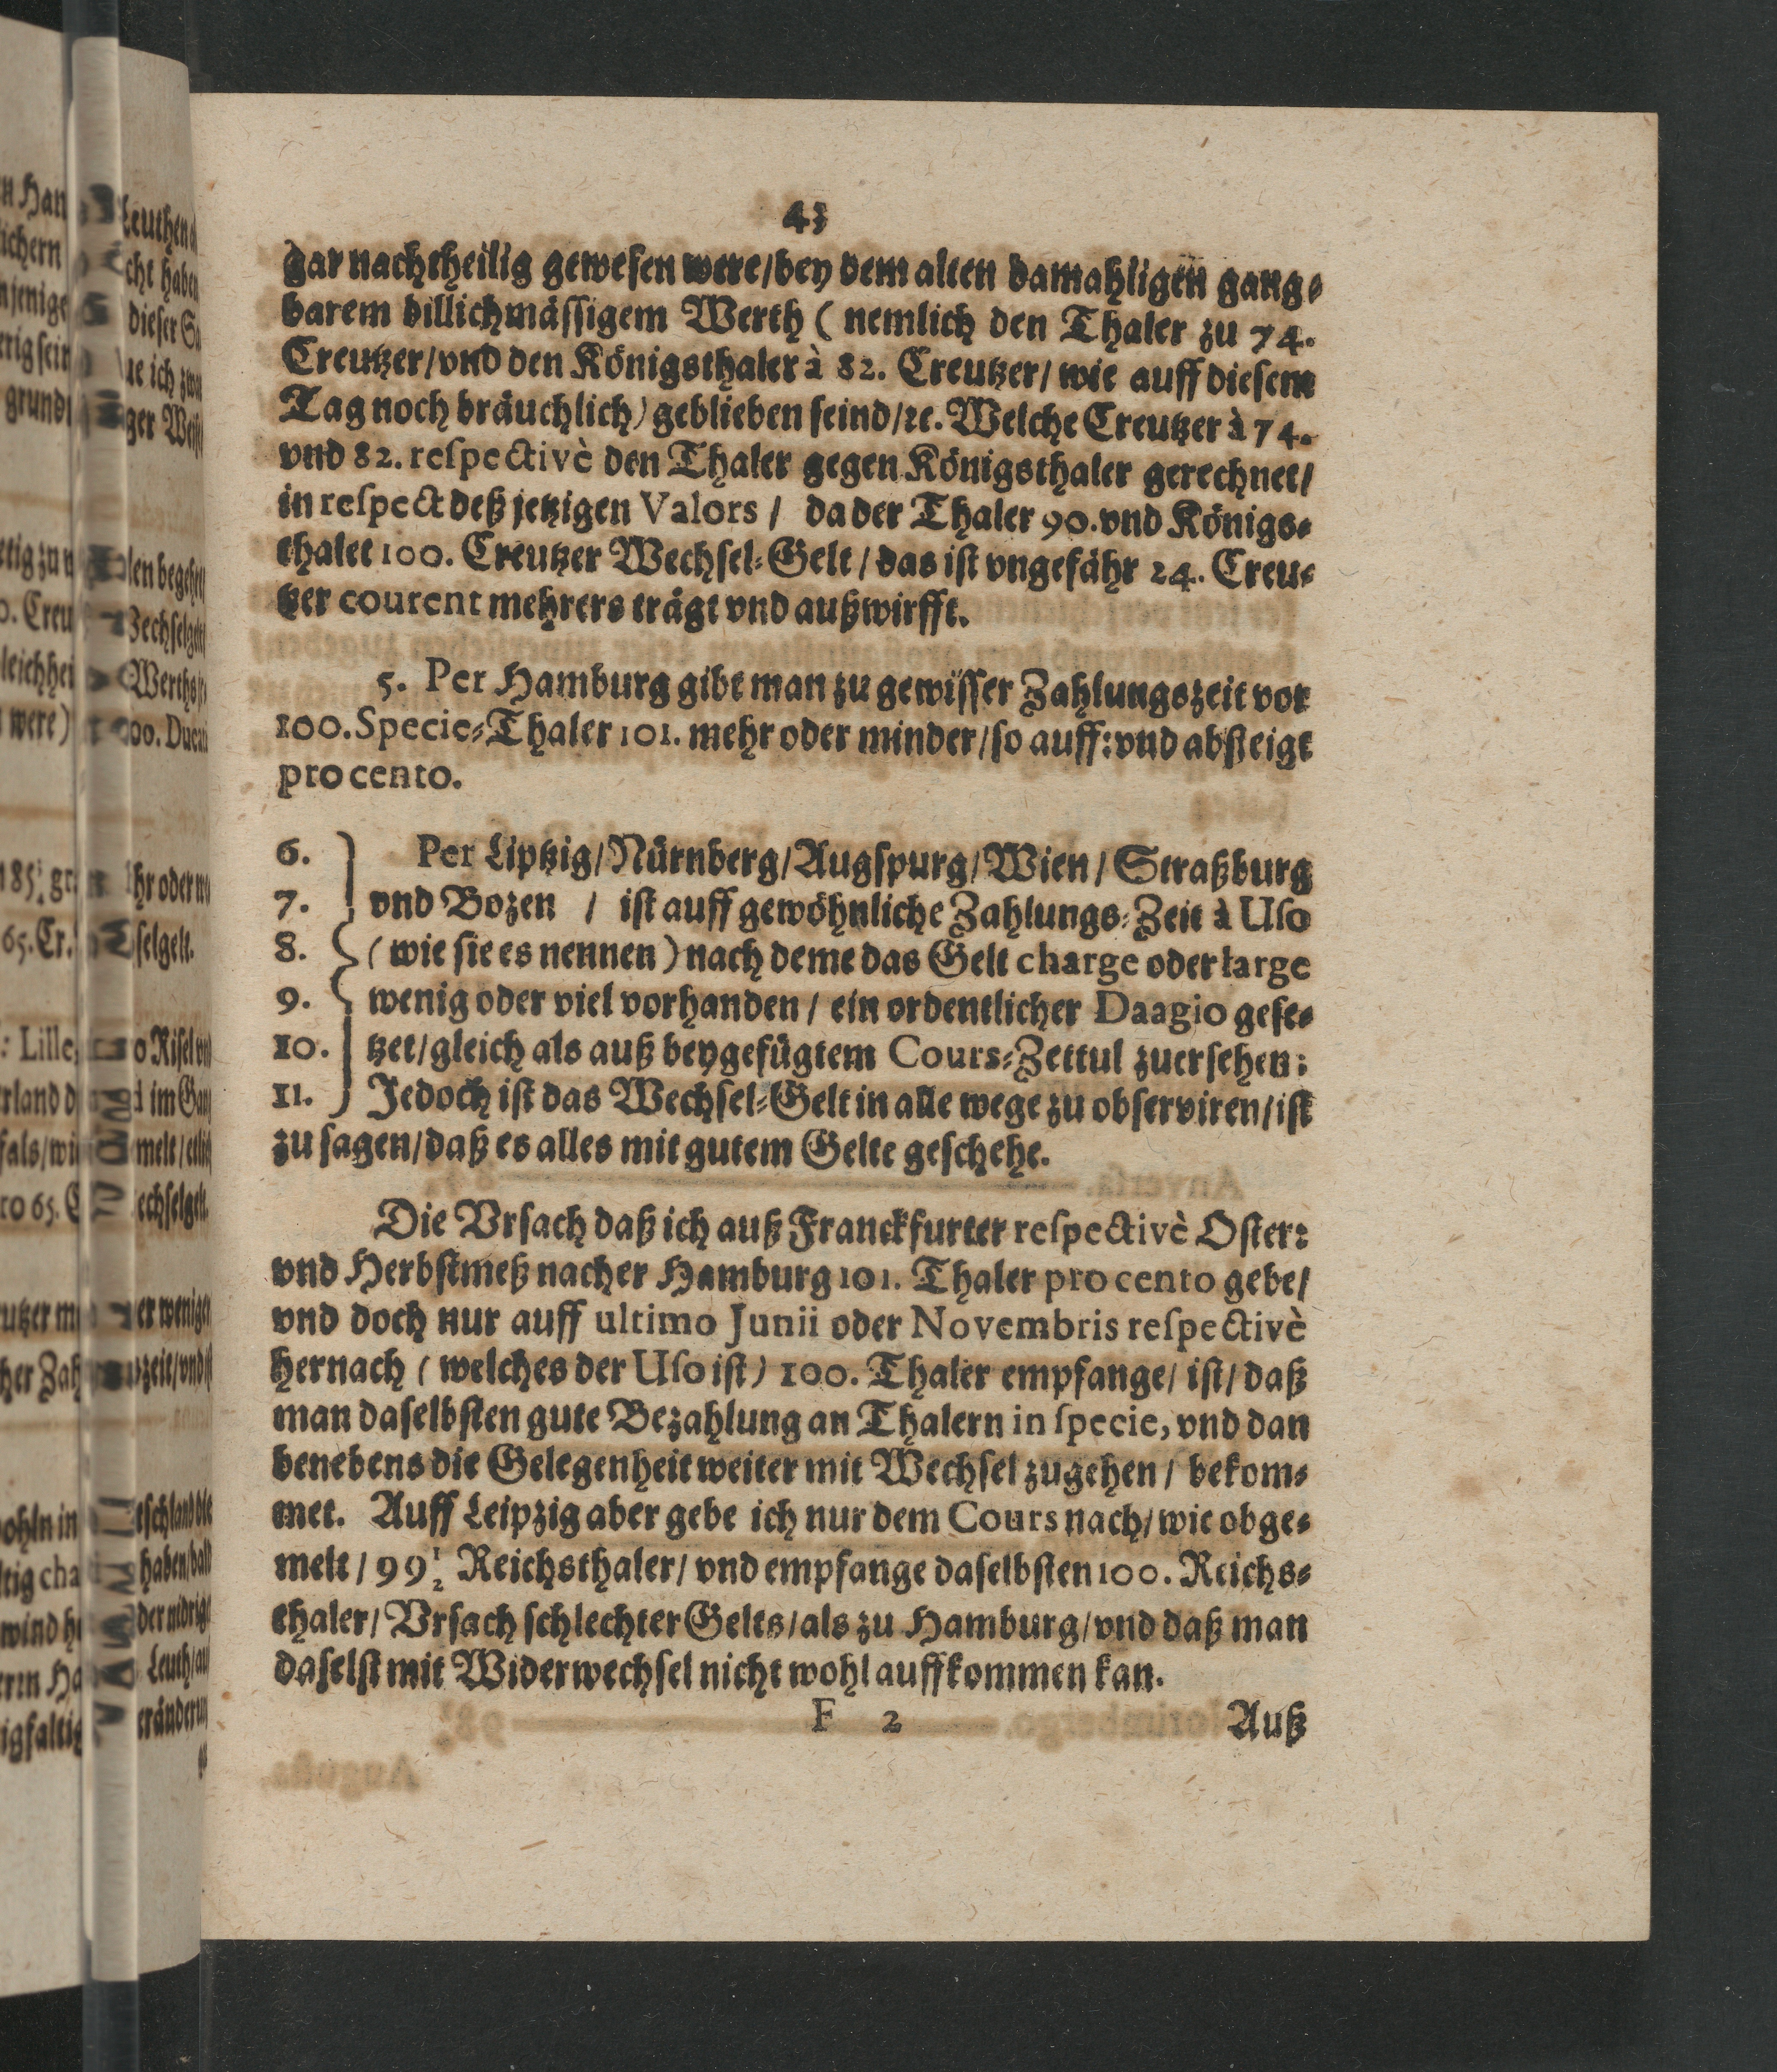 43
gar nachtheilig gewesen were/bey dem alten damahligen gang-
barem billichmässigem Werth ( nemlich den Thaler zu 74.
Creutzer/vnd den Königsthaler à 82. Creutzer/ wie auff diesem
Tag noch bräuchlich) geblieben seind/ꝛc. Welche Creutzer à 74.
vnd 82. respectivè den Thaler gegen Königsthaler gerechnet/
in respect deß jetzigen Valors / da der Thaler 90. vnd Königs-
thalet 100. Creutzer Wechsel-Gelt / das ist vngefähr 24. Creu-
tzer courent mehrers trägt vnd außwirfft.
5. Per Hamburg gibt man zu gewisser Zahlungszeit vor
100. Specie-Thaler 101. mehr oder minder/so auff: vnd absteigt
pro cento.
6. Per Liptzig/Nürnberg/Augspurg/Wien/Straßburg
7. vnd Bozen / ist auff gewöhnliche Zahlungs-Zeit à Uso
8. ( wie sie es nennen ) nach deme das Gelt charge oder large
9. wenig oder viel vorhanden / ein ordentlicher Daagio gese-
10. tzet/gleich als auß beygefügtem Cours-Zettul zuersehen:
11. Jedoch ist das Wechsel-Gelt in alle wege zu observiren/ist
zu sagen/daß es alles mit gutem Gelte geschehe.
Die Vrsach daß ich auß Franckfurter respectivè Oster:
vnd Herbstmeß nacher Hamburg 101. Thaler pro cento gebe/
vnd doch nur auff ultimo Junii oder Novembris respectivè
hernach ( welches der Uso ist) 100. Thaler empfange/ ist/ daß
man daselbsten gute Bezahlung an Thalern in specie, vnd dan
benebens die Gelegenheit weiter mit Wechsel zugehen / bekom-
met. Auff Leipzig aber gebe ich nur dem Cours nach/ wie obge-
melt / 99 1/2 Reichsthaler/ vnd empfange daselbsten 100. Reichs-
thaler/ Vrsach schlechter Gelts/als zu Hamburg/vnd daß man
daselst mit Widerwechsel nicht wohl auffkommen kan.
F 2 Auß